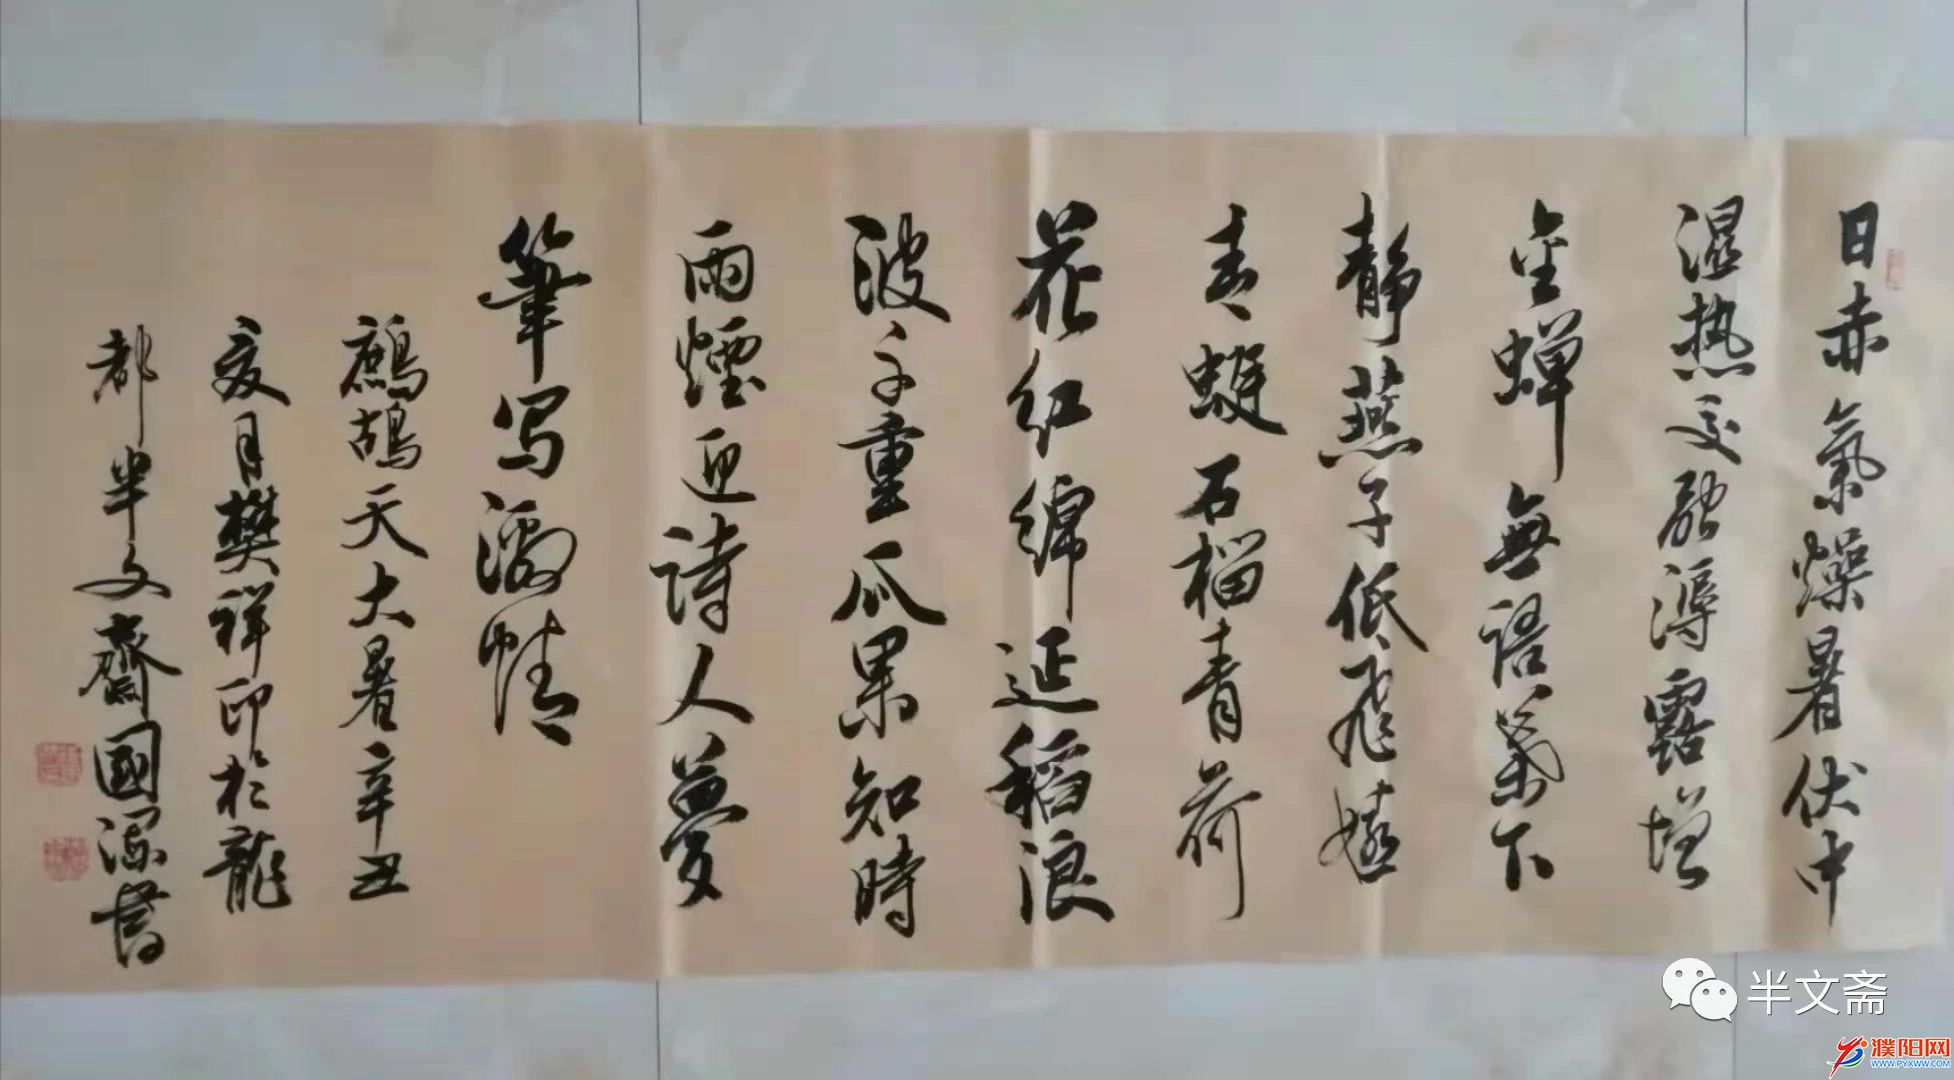 日赤氣燥暑伏中
湿热交融溽露增
金蝉無語葉下
静燕子低飛嬉
青蜓石榴青荷
花红綿延稻浪
波千重瓜果知時
雨煙迎詩人夢
筆写濃情
鷓鴣天大暑辛丑
夏月樊祥印於龍
都半文齋國深書
半文斋
濮阳网
WWW.PYXWW.COM